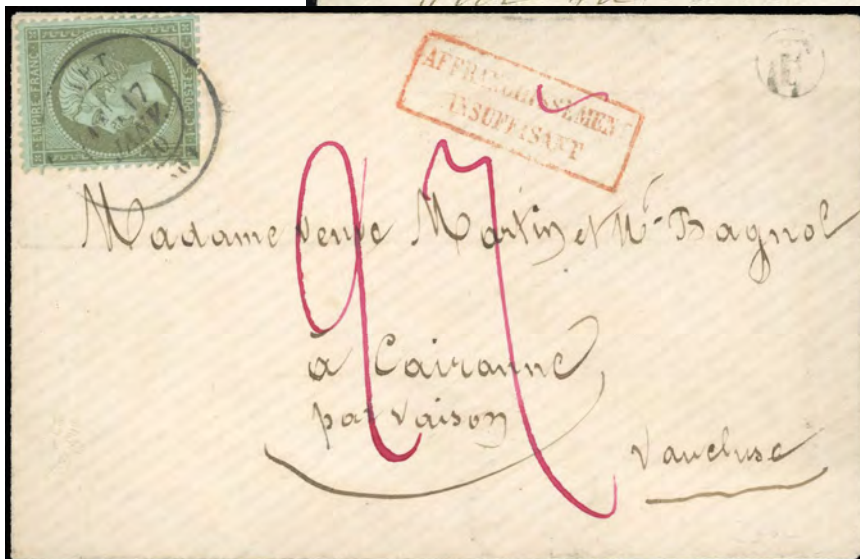 EMPIRE FRANC
POSTES
17
JANV
AFFRANCHISSEMENT
INSUFFISANT
E
27
Madame Veuve Martin et Mr Bagnol
à Cairanne
par Vaison
Vaucluse